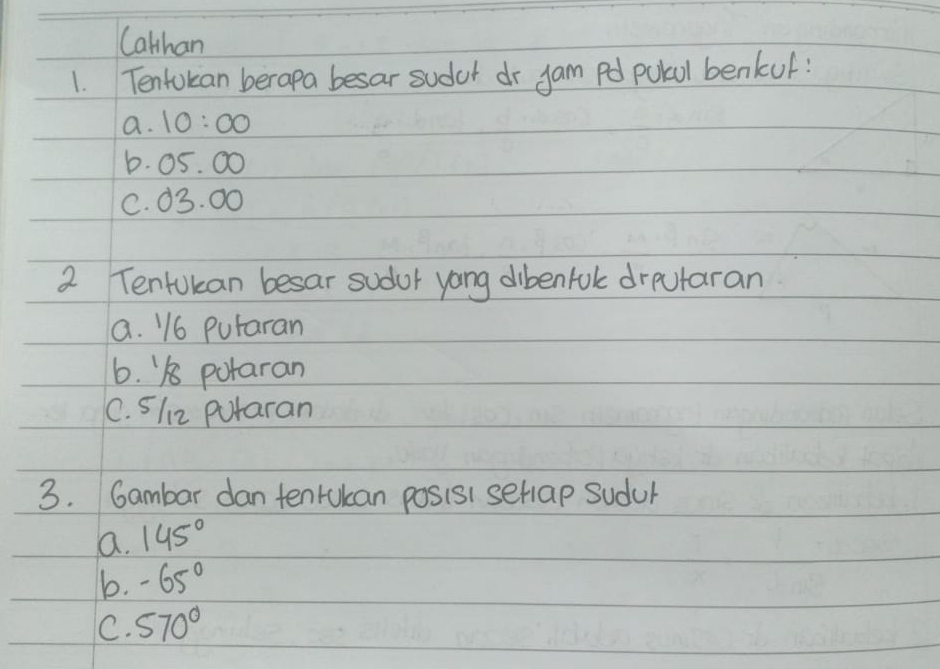 Latihan
1. Tentukan berapa besar sudut dr jam pd pukul berikut:
a. 10:00
b. 05.00
c. 03.00
2 Tentukan besar sudut yang dibentuk dr putaran
a. 1/6 putaran
b. 1/8 putaran
c. 5/12 putaran
3. Gambar dan tentukan posisi setiap sudut
a. 145°
b. -65°
c. 570°